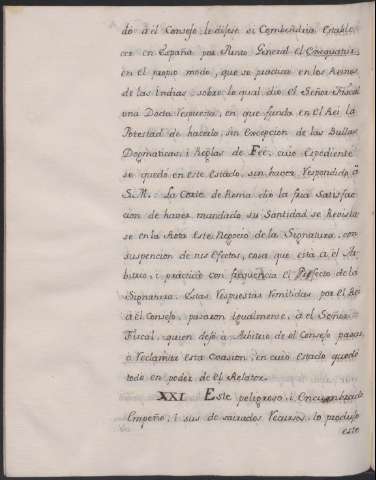 do à el Consejo le dijese si Combendria Estable-
cer en España por Punto General el Coxequatur,
en el propio modo, que se practica en los Reinos
de las Indias: sobre lo qual dio el Señor Fiscal
una Docta respuesta, en que funda en el Rei la
Potestad de hacerlo, sin Excepcion de las Bullas
Dogmaticas, i Reglas de Fee, cuio Expediente
se quedo en este Estado, sin haver respondido à
S. M.: La Corte de Roma dio la fria Satisfac-
cion de haver mandado su Santidad se Revista-
se en la Rota este Negocio de la Signatura, con
suspencion de sus efectos, cosa que esta à el Ar-
bitrio, i practica con frequencia el Prefecto de la
Signatura. Estas respuestas remitidas por el Rei
à el Consejo, pasaron igualmente, à el Señor
Fiscal, quien dejo à Arbitrio de el Consejo pasar,
o reclamar esta evasion, en cuio estado quedó
todo en poder de el Relator.
XXI. Este peligroso, i
Empeño, i sus de recursos, lo produjo
este